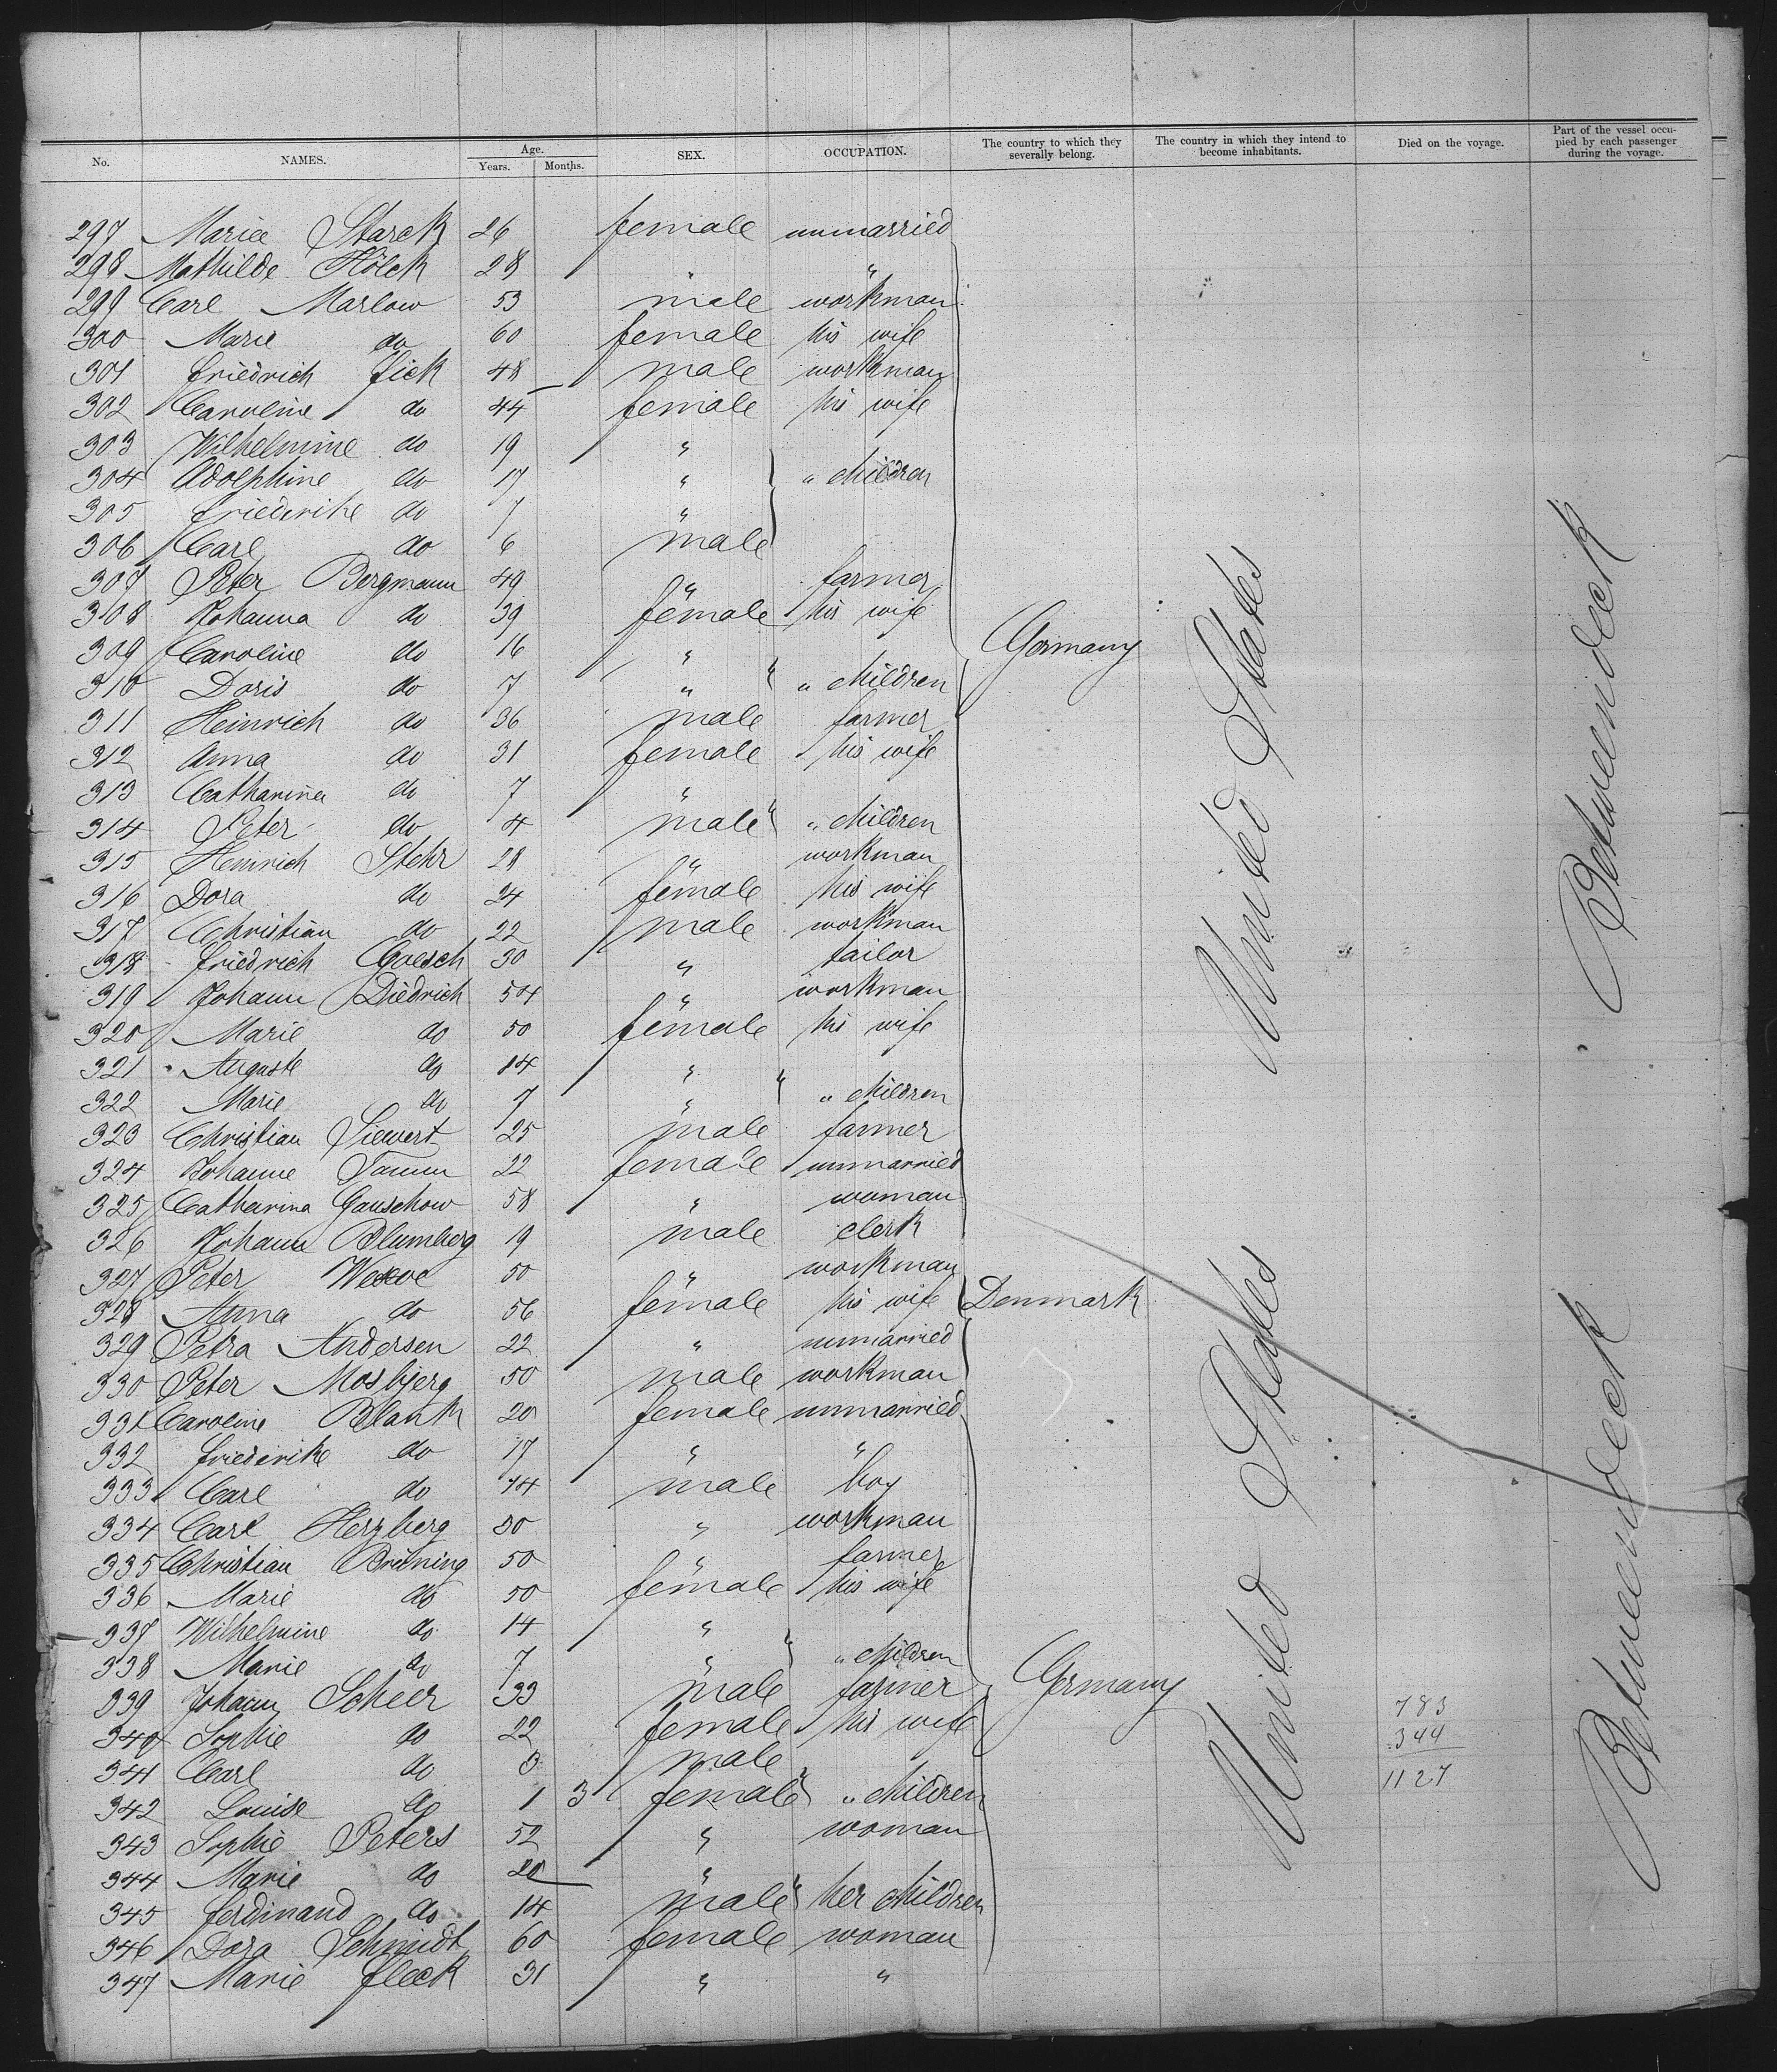 No. NAMES. Age. Years. Months. SEX. OCCUPATION. The country to which they severally belong. The country in which they intend to become inhabitants. Died on the voyage. Part of the vessel occupied by each passenger during the voyage.
297 Mariee Starck 26 female unmarried
298 Mathilde Hölck 28 " "
299 Carl Marlow 53 male workman
300 Marie do 60 female his wife
301 Friedrich Fick 48 male workman
302 Caroline do 44 female his wife
303 Wilhelmine do 19 "
304 Adolphine do 17 " " children
305 Friederike do 7 "
306 Carl do 6 male
307 Peter Bergmann 49 " farmer
308 Johanna do 39 female his wife
309 Caroline do 16 " Germany
310 Doris do 7 " " children
311 Heinrich do 36 male farmer
312 Anna do 31 female his wife
313 Catharina do 7 "
314 Peter do 4 male " children
315 Heinrich Stehr 28 " workman
316 Dora do 24 female his wife
317 Christian do 22 male workman
318 Friedrich Coesch 30 " tailor
319 Johann Diedrich 54 " workman
320 Marie do 50 female his wife
321 Auguste do 14 "
322 Marie do 7 " " children
323 Christian Siewert 25 male farmer
324 Johanne Tamm 22 female unmarried
325 Catharina Gauschow 58 " woman
326 Johann Blumberg 19 male clerk
327 Peter 50 " workman
328 Anna do 56 female his wife Denmark
329 Petra Andersen 22 " unmarried
330 Peter Mosbjerg 50 male workman
331 Caroline Blank 20 female unmarried
332 Friederike do 17 " "
333 Carl do 14 male boy
334 Carl Herzberg 30 " workman
335 Christian Brüning 50 " farmer
336 Marie do 50 female his wife
337 Wilhelmine do 14 "
338 Marie do 7 " " children
339 Johann Scheer 33 male farmer Germany
340 Sophie do 22 female his wife
341 Carl do 3 male
342 Louise do 1 3 female " children
343 Sophie Peters 52 " woman
344 Marie do 20 "
345 Ferdinand do 14 male her children
346 Dora Schmidt 60 female woman
347 Marie Fleck 31 " "
United States
United States
783
344
1127
Betweendeck
Betweendeck